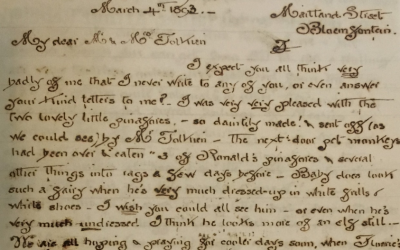 March 4th 1893. — Maitland Street
Bloemfontein.
My dear Mr & Mrs Tolkien
I expect you all think very
badly of me that I never write to any of you, or even answer
your kind letters to me! — I was very very pleased with the
two lovely little pinafores, — so daintily made! & sent off (as
we could see) by Mr Tolkien — The next-door pet monkeys
had been over & eaten 3 of Ronald's pinafores & several
other things into rags a few days before — Baby does look
such a fairy when he's very much dressed-up in white frills &
white shoes — I wish you could all see him — or even when he's
very much undressed I think he looks more of an elf still —
We are all hoping & praying for cooler days soon, when